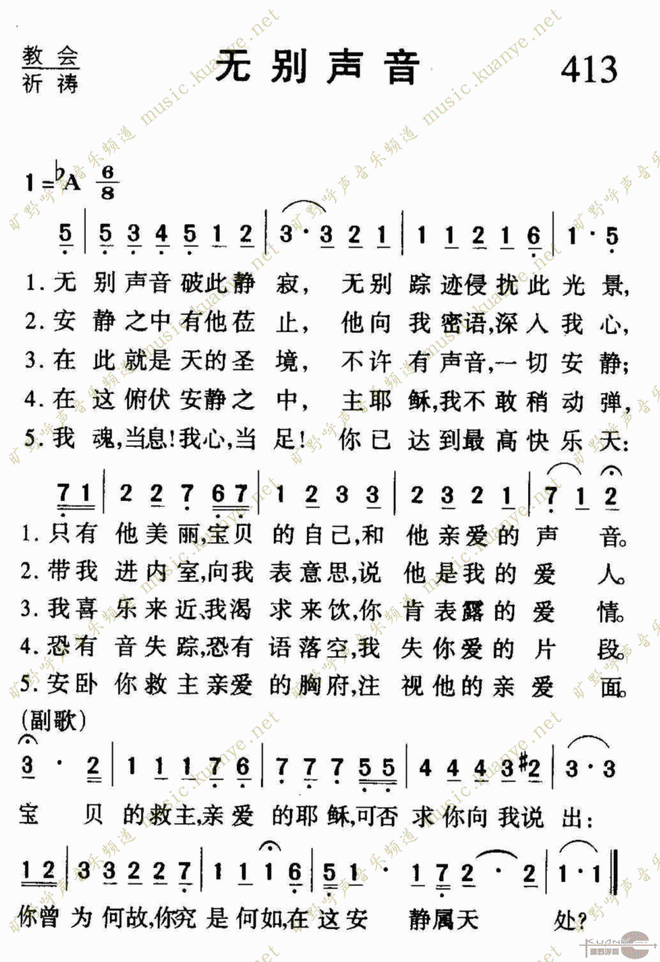 教会
祈祷
无别声音
413
1=♭A 6/8
5 | 5 3 4 5 1 2 | 3·3 2 1 | 1 1 2 1 6 | 1·5
1.无别声音破此静寂，无别踪迹侵扰此光景，
2.安静之中有他莅止，他向我密语,深入我心，
3.在此就是天的圣境，不许有声音,一切安静;
4.在这俯伏安静之中，主耶稣,我不敢稍动弹，
5.我魂,当息!我心,当足!你已达到最高快乐天:
7 1 | 2 2 7 6 7 | 1 2 3 3 | 2 3 2 1 | 7 1 2
1.只有他美丽,宝贝的自己,和他亲爱的声音。
2.带我进内室,向我表意思,说他是我的爱人。
3.我喜乐来近、我渴求来饮,你肯表露的爱情。
4.恐有音失踪,恐有语落空,我失你爱的片段。
5.安卧你救主亲爱的胸府,注视他的亲爱面。
(副歌)
3·2 | 1 1 1 7 6 | 7 7 7 5 5 | 4 4 4 3 #2 | 3·3
宝贝的救主,亲爱的耶稣,可否求你向我说出:
1 2 | 3 3 2 2 7 | 1 1 1 6 | 5 5 1·1 | 7 2·2 | 1·1 ‖
你曾为何故,你究是何如,在这安静属天处?
旷野呼声音乐频道 music.kuanye.net